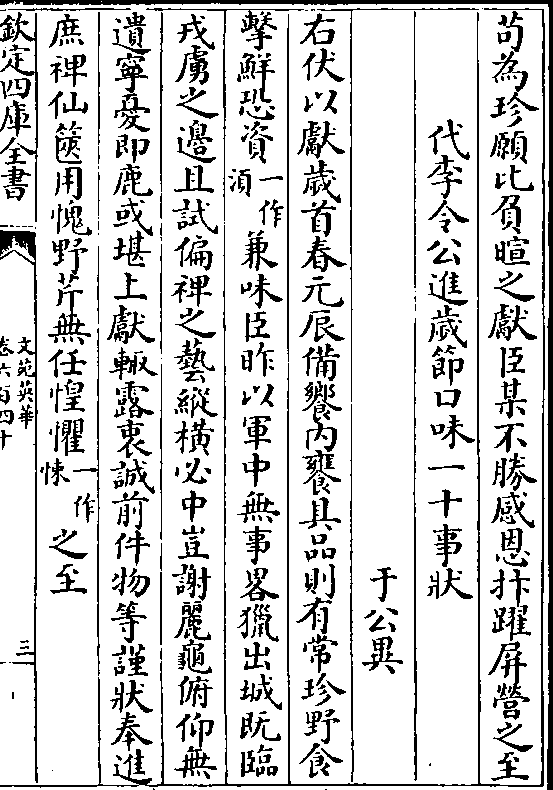 茍為珍願比負暄之獻臣某不勝感恩抃躍屏營之至
代李令公進歲節口味一十事狀
于公異
右伏以獻歲首春元辰備饗内饔具品則有常珍野食
擊鮮恐資一作湏兼味臣昨以軍中無事畧獵出城既臨
戎虜之邉且試偏裨之藝縱横必中豈謝麗龜俯仰無
遺寧憂即鹿或堪上獻輙露衷誠前件物等謹狀奉進
庶裨仙篋用愧野芹無任惶懼一作悚之至
欽定四庫全書
文苑英華
卷六百四十
三